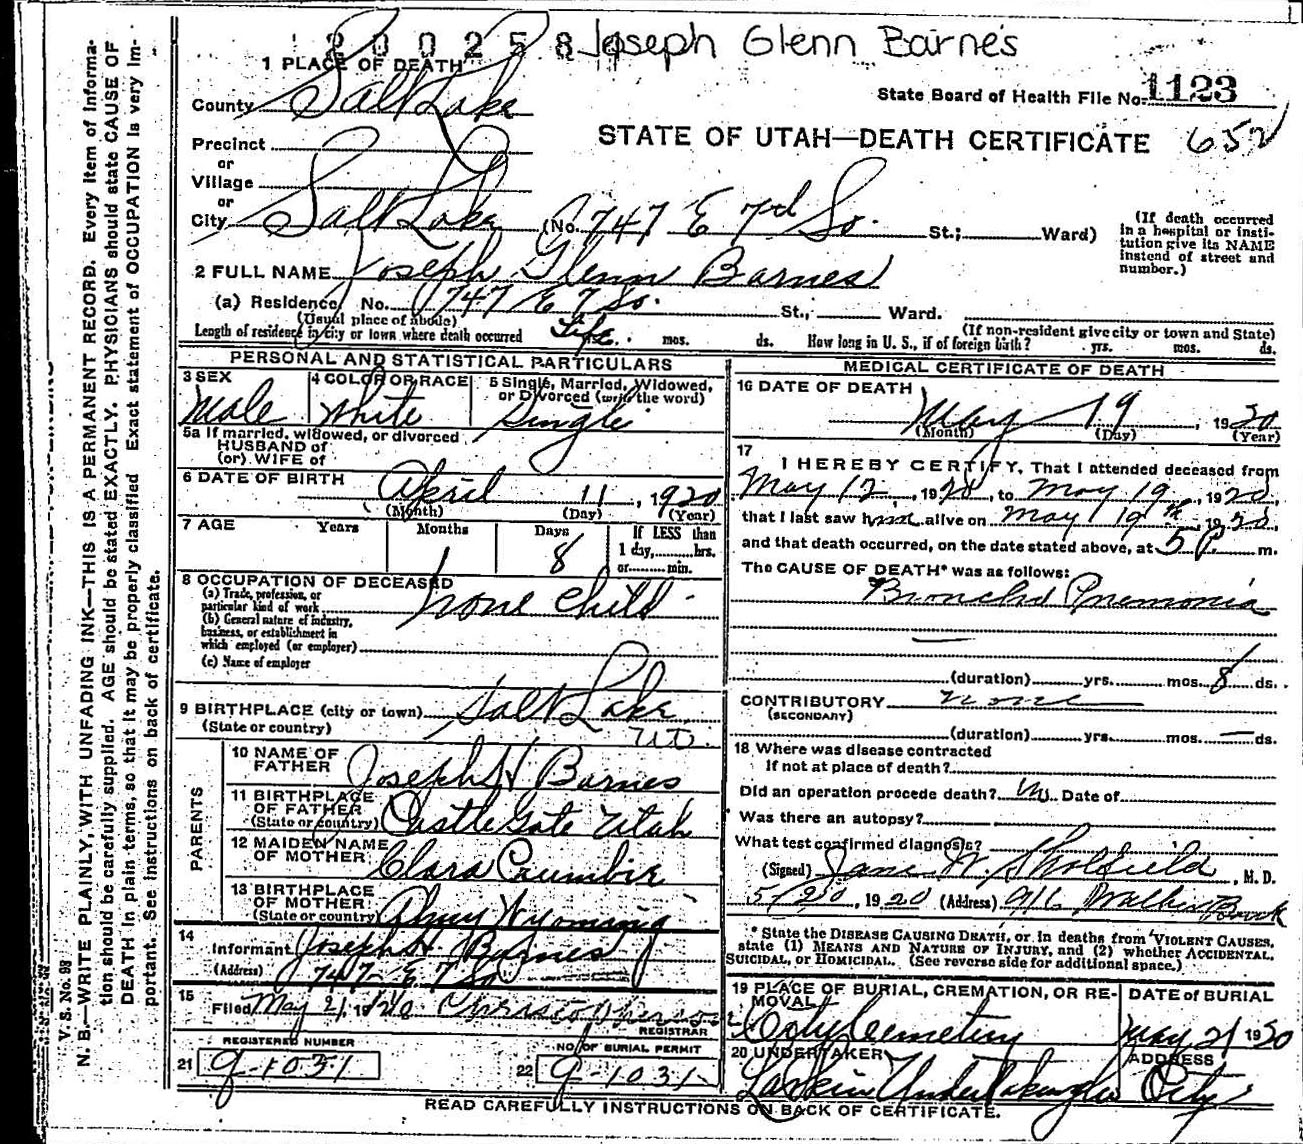 200258 Joseph Glenn Barnes
1 PLACE OF DEATH
County Salt Lake
State Board of Health File No. 1123
Precinct
or
Village
or
STATE OF UTAH—DEATH CERTIFICATE 652
City Salt Lake (No. 747 E 7th So. St.; Ward)
(If death occurred in a hospital or institution give its NAME instend of street and number.)
2 FULL NAME Joseph Glenn Barnes
(a) Residence, No. 747 E 7 So. St., Ward.
(Usual place of abode)
(If non-resident give city or town and State)
Length of residence in city or town where death occurred Life. mos. ds. How long in U. S., if of foreign birth? yrs. mos. ds.
PERSONAL AND STATISTICAL PARTICULARS
3 SEX Male
4 COLOR OR RACE White
5 Single, Married, Widowed, or Divorced (write the word) Single
5a If married, widowed, or divorced
HUSBAND of
(or) WIFE of
6 DATE OF BIRTH April 11, 1920
(Month) (Day) (Year)
7 AGE Years Months 1 Days 8 If LESS than
1 day, hrs.
or min.
8 OCCUPATION OF DECEASED
(a) Trade, profession, or particular kind of work none child
(b) General nature of industry, business, or establishment in which employed (or employer)
(c) Name of employer
9 BIRTHPLACE (city or town) Salt Lake
(State or country) Ut.
PARENTS
10 NAME OF FATHER Joseph H Barnes
11 BIRTHPLACE OF FATHER (State or country) Castle Gate Utah
12 MAIDEN NAME OF MOTHER Clara Crumbie
13 BIRTHPLACE OF MOTHER (State or country) Almy Wyoming
14
Informant Joseph H. Barnes
(Address) 747 E 7 So
15
Filed May 21, 1920
REGISTRAR
REGISTERED NUMBER
21 9-1031
NO. OF BURIAL PERMIT
22 9-1031
MEDICAL CERTIFICATE OF DEATH
16 DATE OF DEATH
May 19, 1920
(Month) (Day) (Year)
17
I HEREBY CERTIFY, That I attended deceased from
May 12, 1920, to May 19th, 1920,
that I last saw him alive on May 19th, 1920,
and that death occurred, on the date stated above, at 5 P. m.
The CAUSE OF DEATH* was as follows:
Broncho Pnemonia
(duration) yrs. mos. 8 ds.
CONTRIBUTORY none
(SECONDARY)
(duration) yrs. mos. — ds.
18 Where was disease contracted
If not at place of death?
Did an operation procede death? No Date of
Was there an autopsy?
What test confirmed diagnosis?
(Signed) Jane W. Skolfield, M. D.
5/20, 1920 (Address) 916 Walker Bank
* State the DISEASE CAUSING DEATH, or in deaths from VIOLENT CAUSES,
state (1) MEANS AND NATURE OF INJURY, and (2) whether ACCIDENTAL,
SUICIDAL, or HOMICIDAL. (See reverse side for additional space.)
19 PLACE OF BURIAL, CREMATION, OR REMOVAL
City Cemetery
DATE of BURIAL
May 21 1920
20 UNDERTAKER
Larkin Undertaking Co
ADDRESS
City
READ CAREFULLY INSTRUCTIONS ON BACK OF CERTIFICATE.
V. S. No. 98
N. B.—WRITE PLAINLY, WITH UNFADING INK—THIS IS A PERMANENT RECORD. Every item of informa-
tion should be carefully supplied. AGE should be stated EXACTLY. PHYSICIANS should state CAUSE OF
DEATH in plain terms, so that it may be properly classified. Exact statement of OCCUPATION is very im-
portant. See instructions on back of certificate.